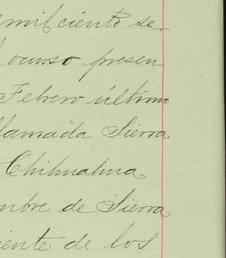 mil ciento se
ocurso presen
Febrero último
llamada Sierra
Chihuahua
mbre de Sierra
iente de los